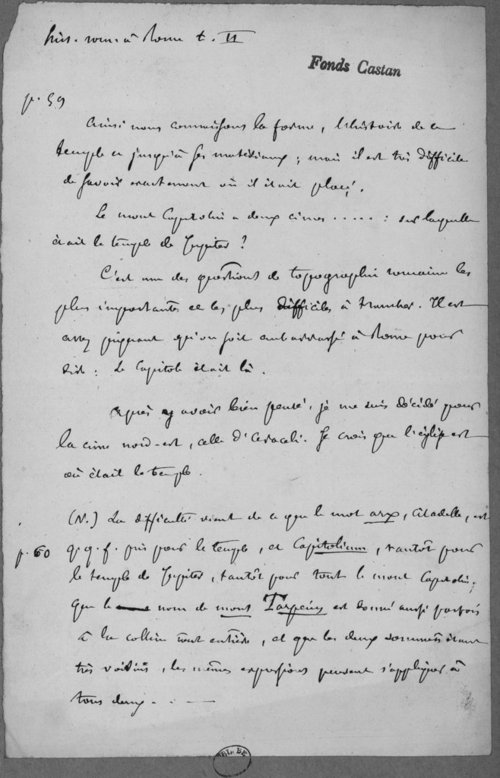 hist. rom. à Rome t. II
Fonds Castan
p. 59
Ainsi nous connaissons la forme, l'histoire de ce
temple et jusqu'à ses matériaux ; mais il est très difficile
de savoir exactement où il était placé.
Le mont Capitolin a deux cimes ..... : sur laquelle
était le temple de Jupiter ?
C'est une des questions de topographie romaine les
plus importantes et les plus difficiles à trancher. Il est
assez piquant qu'on soit embarrassé à Rome pour
dire : Le Capitole était là.
Après y avoir bien pensé, je me suis décidé pour
la cime nord-est, celle d'Araceli. Je crois que l'église est
où était le temple.
(N.) La difficulté vient de ce que le mot arx, citadelle, est
p. 60 q.q.f. pris pour le temple, et Capitolium, tantôt pour
le temple de Jupiter, tantôt pour tout le mont Capitolin ;
que le nom de mont Tarpeius est donné aussi parfois
à la colline tout entière, et que les deux sommets étant
très voisins, les mêmes expressions peuvent s'appliquer à
tous deux . . . —